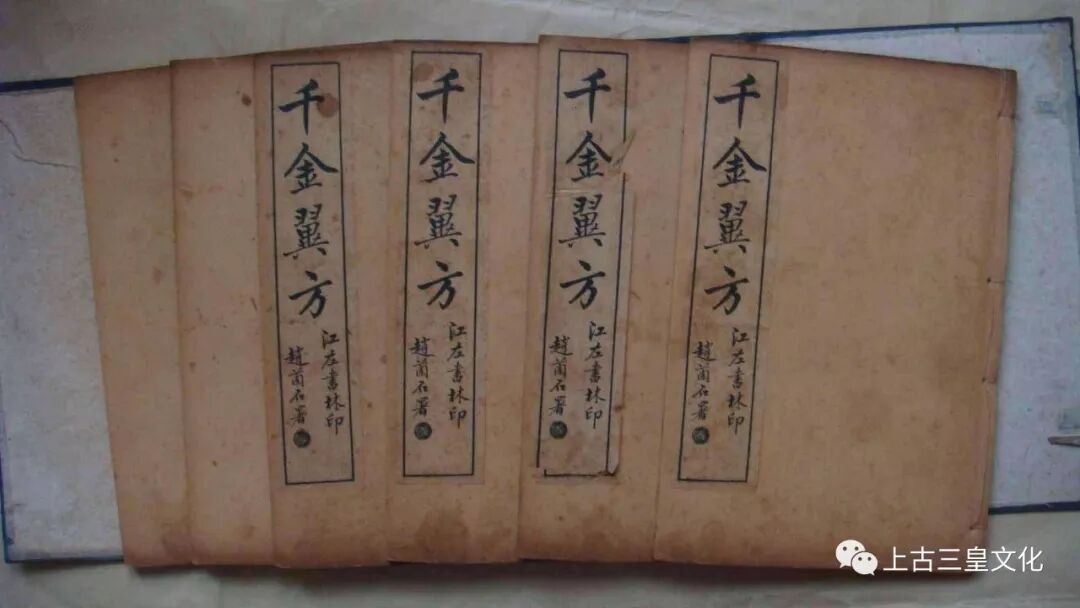 千金翼方
江左書林印
趙蘭石署
千金翼方
江左書林印
趙蘭石署
千金翼方
江左書林印
趙蘭石署
千金翼方
江左書林印
趙蘭石署
上古三皇文化